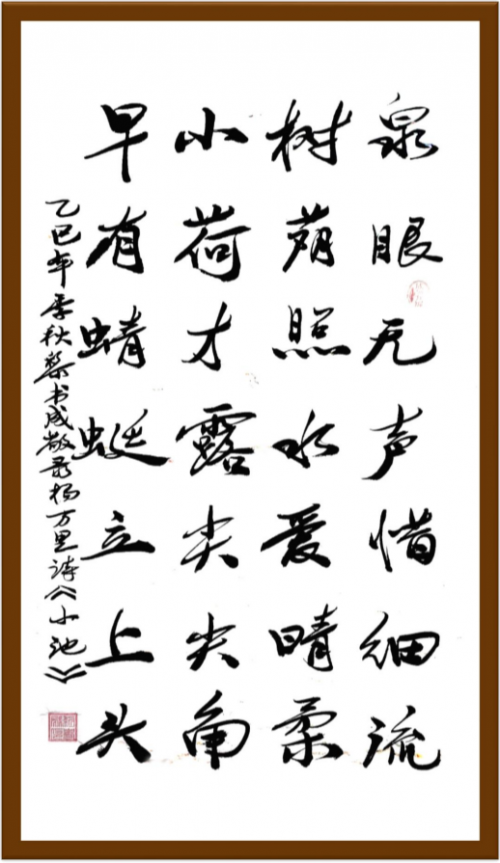 泉眼无声惜细流
树荫照水爱晴柔
小荷才露尖尖角
早有蜻蜓立上头
乙巳年季秋黎书成敬录杨万里诗《小池》